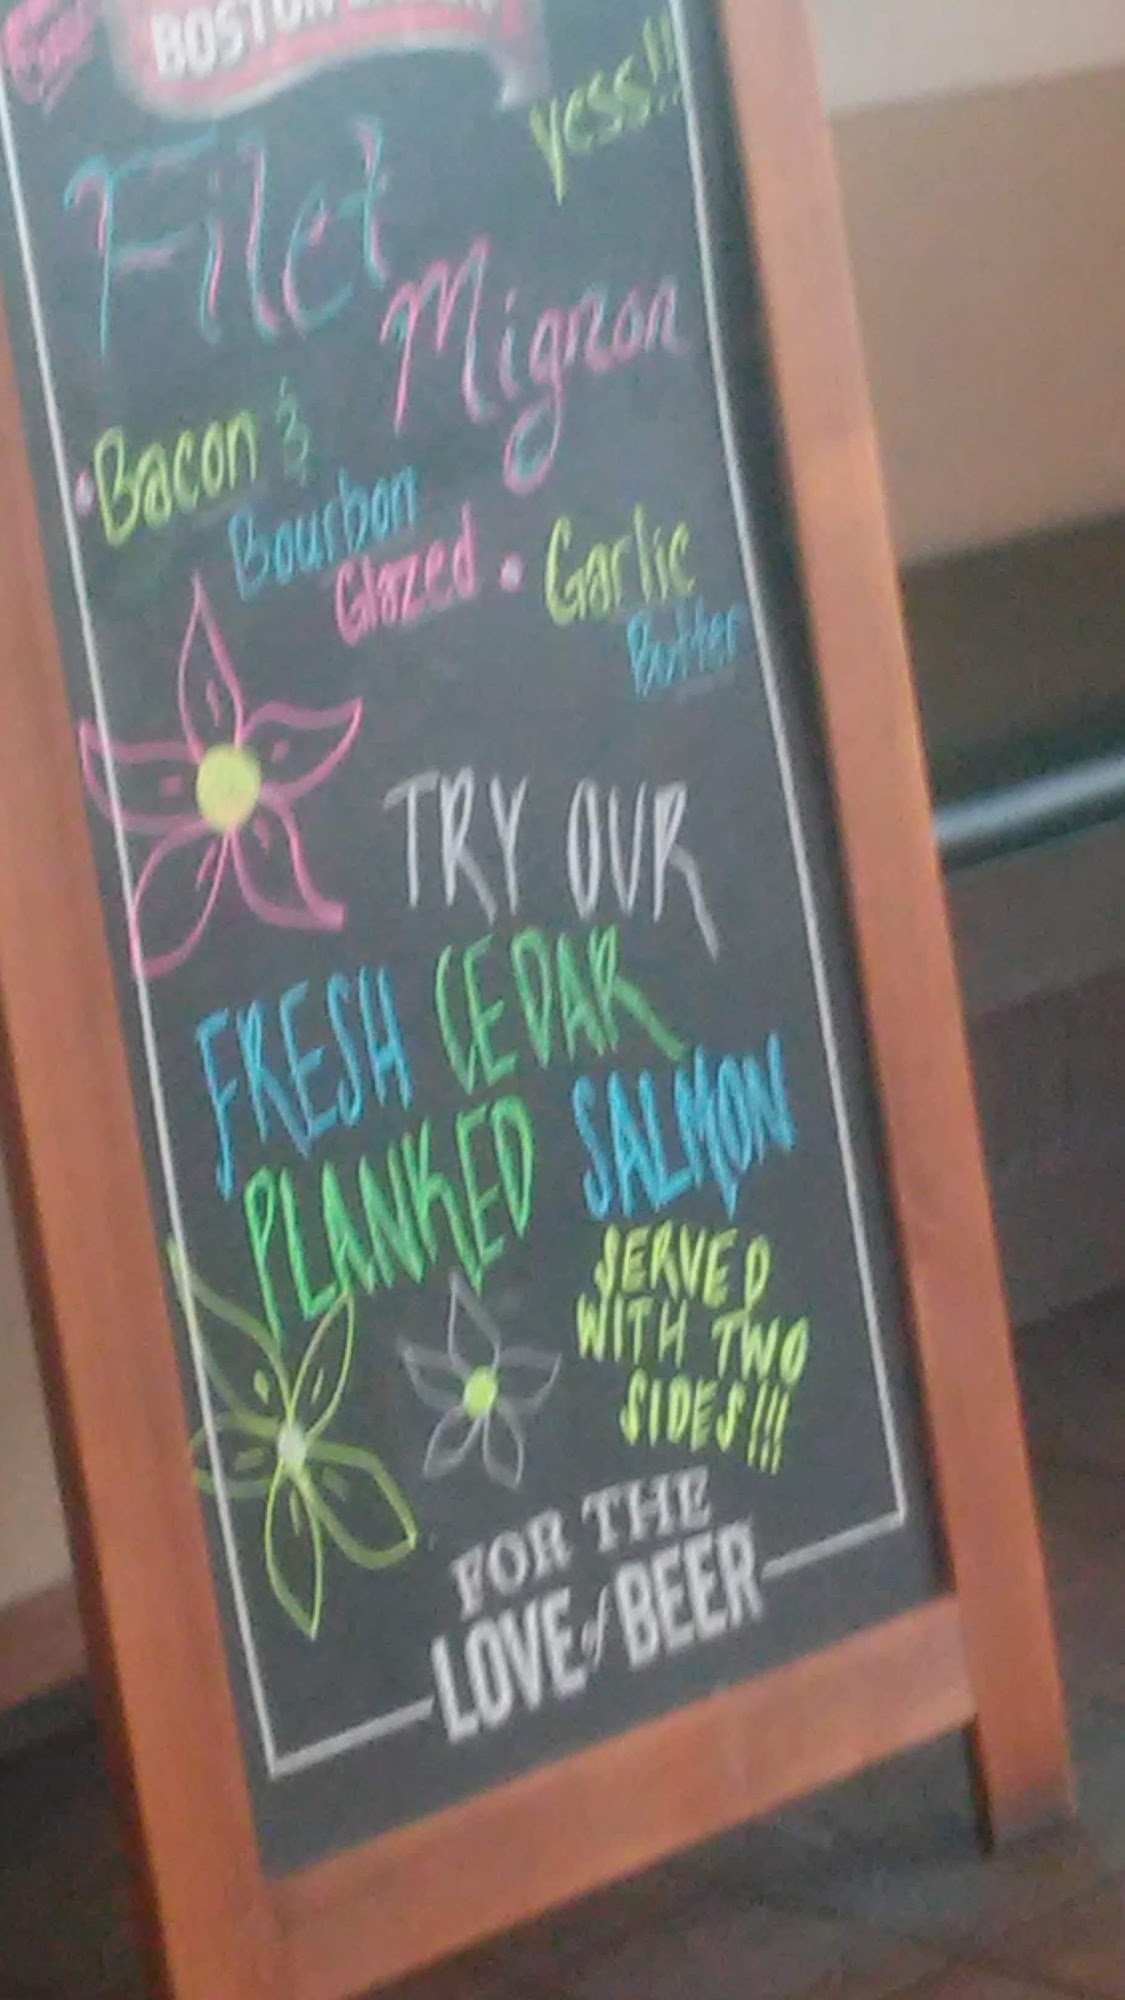 BOSTON
yess!!
Filet
Mignon
• Bacon &
Bourbon
Glazed • Garlic
Butter
TRY OUR
FRESH CEDAR
PLANKED SALMON
SERVED
WITH TWO
SIDES!!!
FOR THE
LOVE of BEER